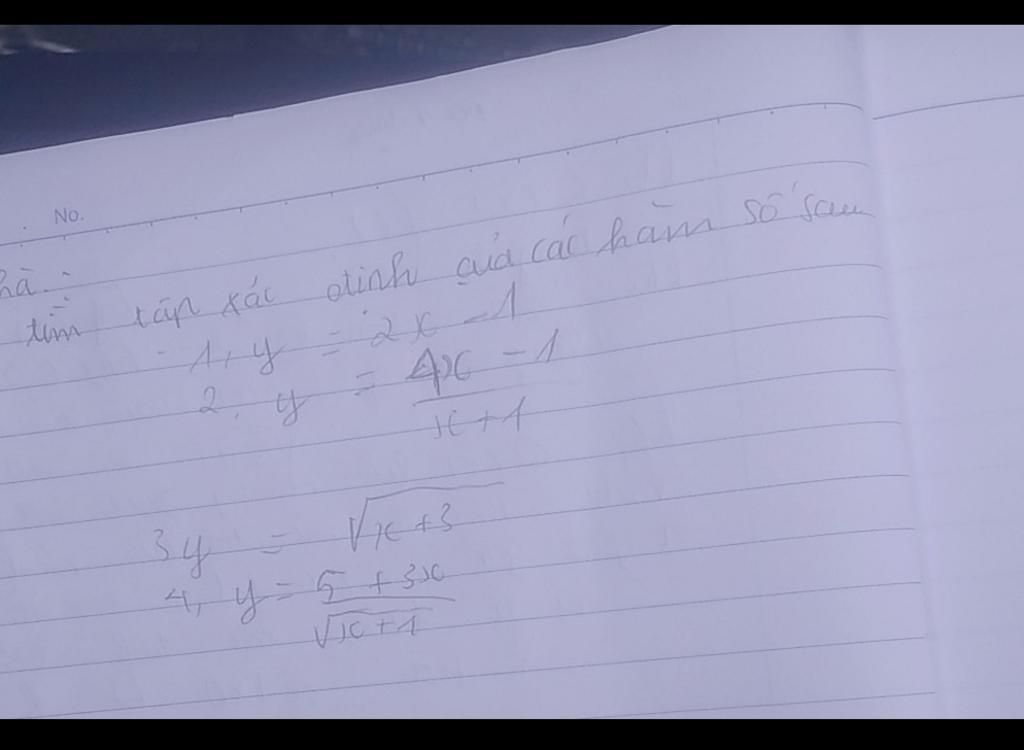 No.
hà:
tìm tập xác định của các hàm số sau
1, y = 2x - 1
2, y = 4x - 1
x + 1
3 y = √x + 3
4, y = 5 + 3x
√x + 1